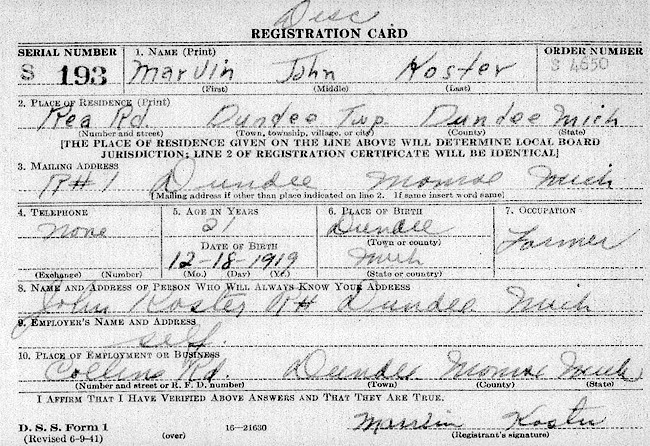 Disc
REGISTRATION CARD
SERIAL NUMBER 1. NAME (Print) ORDER NUMBER
S 193 Marvin John Koster S 4650
(First) (Middle) (Last)
2. PLACE OF RESIDENCE (Print)
Rea Rd Dundee Twp Dundee Mich
(Number and street) (Town, township, village, or city) (County) (State)
[THE PLACE OF RESIDENCE GIVEN ON THE LINE ABOVE WILL DETERMINE LOCAL BOARD
JURISDICTION; LINE 2 OF REGISTRATION CERTIFICATE WILL BE IDENTICAL]
3. MAILING ADDRESS
R#1 Dundee Monroe Mich
[Mailing address if other than place indicated on line 2. If same insert word same]
4. TELEPHONE 5. AGE IN YEARS 6. PLACE OF BIRTH 7. OCCUPATION
None 21 Dundee Farmer
(Town or county)
DATE OF BIRTH
12-18-1919 Mich
(Exchange) (Number) (Mo.) (Day) (Yr.) (State or country)
8. NAME AND ADDRESS OF PERSON WHO WILL ALWAYS KNOW YOUR ADDRESS
John Koster R# Dundee Mich
9. EMPLOYER'S NAME AND ADDRESS
self.
10. PLACE OF EMPLOYMENT OR BUSINESS
Collins Rd. Dundee Monroe Mich
(Number and street or R. F. D. number) (Town) (County) (State)
I AFFIRM THAT I HAVE VERIFIED ABOVE ANSWERS AND THAT THEY ARE TRUE.
D. S. S. Form 1 Marvin Koster
(Revised 6-9-41) (over) 16—21630 (Registrant's signature)